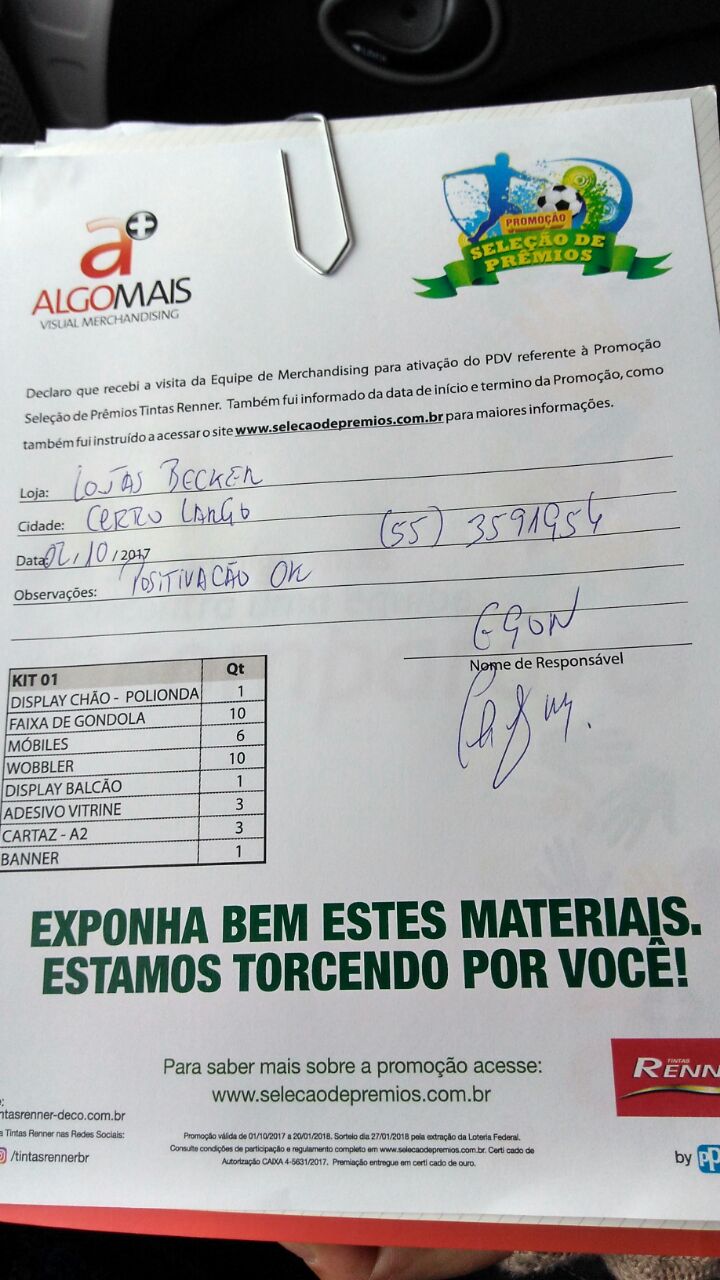 a+
ALGOMAIS
VISUAL MERCHANDISING
PROMOÇÃO
SELEÇÃO DE
PRÊMIOS
Declaro que recebi a visita da Equipe de Merchandising para ativação do PDV referente à Promoção
Seleção de Prêmios Tintas Renner. Também fui informado da data de início e termino da Promoção, como
também fui instruído a acessar o site www.selecaodepremios.com.br para maiores informações.
Loja: LOJAS BECKER
Cidade: CERRO LARGO
(55) 3591954
Data: 02/10/2017
Observações: POSITIVAÇÃO OK
EGON
Nome de Responsável
KIT 01 Qt
DISPLAY CHÃO - POLIONDA 1
FAIXA DE GONDOLA 10
MÓBILES 6
WOBBLER 10
DISPLAY BALCÃO 1
ADESIVO VITRINE 3
CARTAZ - A2 3
BANNER 1
EXPONHA BEM ESTES MATERIAIS.
ESTAMOS TORCENDO POR VOCÊ!
Para saber mais sobre a promoção acesse:
www.selecaodepremios.com.br
TINTAS
RENN
ntasrenner-deco.com.br
a Tintas Renner nas Redes Sociais:
/tintasrennerbr
Promoção válida de 01/10/2017 a 20/01/2018. Sorteio dia 27/01/2018 pela extração da Loteria Federal.
Consulte condições de participação e regulamento completo em www.selecaodepremios.com.br. Certi cado de
Autorização CAIXA 4-5631/2017. Premiação entregue em certi cado de ouro.
by pp